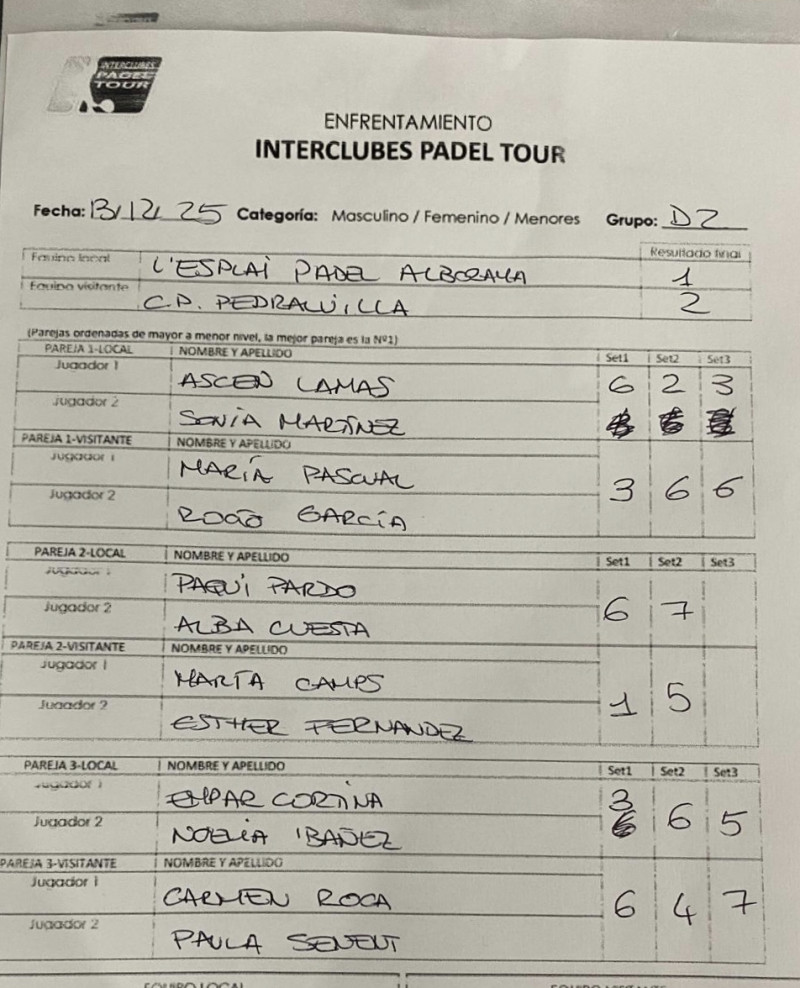 INTERCLUBES
PADEL
TOUR
ENFRENTAMIENTO
INTERCLUBES PADEL TOUR
Fecha: 13/12/25 Categoría: Masculino / Femenino / Menores Grupo: D2
Equipo local L'ESPLAI PADEL ALBORAYA Resultado final 1
Equipo visitante C.P. PEDRALVILLA 2
(Parejas ordenadas de mayor a menor nivel, la mejor pareja es la Nº1)
PAREJA 1-LOCAL NOMBRE Y APELLIDO Set1 Set2 Set3
Jugador 1 ASCEN LAMAS 6 2 3
Jugador 2 SONIA MARTÍNEZ
PAREJA 1-VISITANTE NOMBRE Y APELLIDO
Jugador 1 MARÍA PASCUAL 3 6 6
Jugador 2 ROCÍO GARCÍA
PAREJA 2-LOCAL NOMBRE Y APELLIDO Set1 Set2 Set3
Jugador 1 PAQUI PARDO 6 7
Jugador 2 ALBA CUESTA
PAREJA 2-VISITANTE NOMBRE Y APELLIDO
Jugador 1 MARTA CAMPS 1 5
Jugador 2 ESTHER FERNANDEZ
PAREJA 3-LOCAL NOMBRE Y APELLIDO Set1 Set2 Set3
Jugador 1 EMPAR CORTINA 3 6 5
Jugador 2 NOELIA IBAÑEZ
PAREJA 3-VISITANTE NOMBRE Y APELLIDO
Jugador 1 CARMEN ROCA 6 4 7
Jugador 2 PAULA SENENT
EQUIPO LOCAL EQUIPO VISITANTE